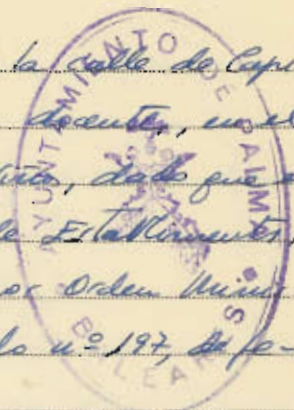 la calle de Capi
docente, en el
dado que
Establiments,
or Orden Minis
lo nº 197, de fe-
AYUNTAMIENTO DE PALMA
BALEARES